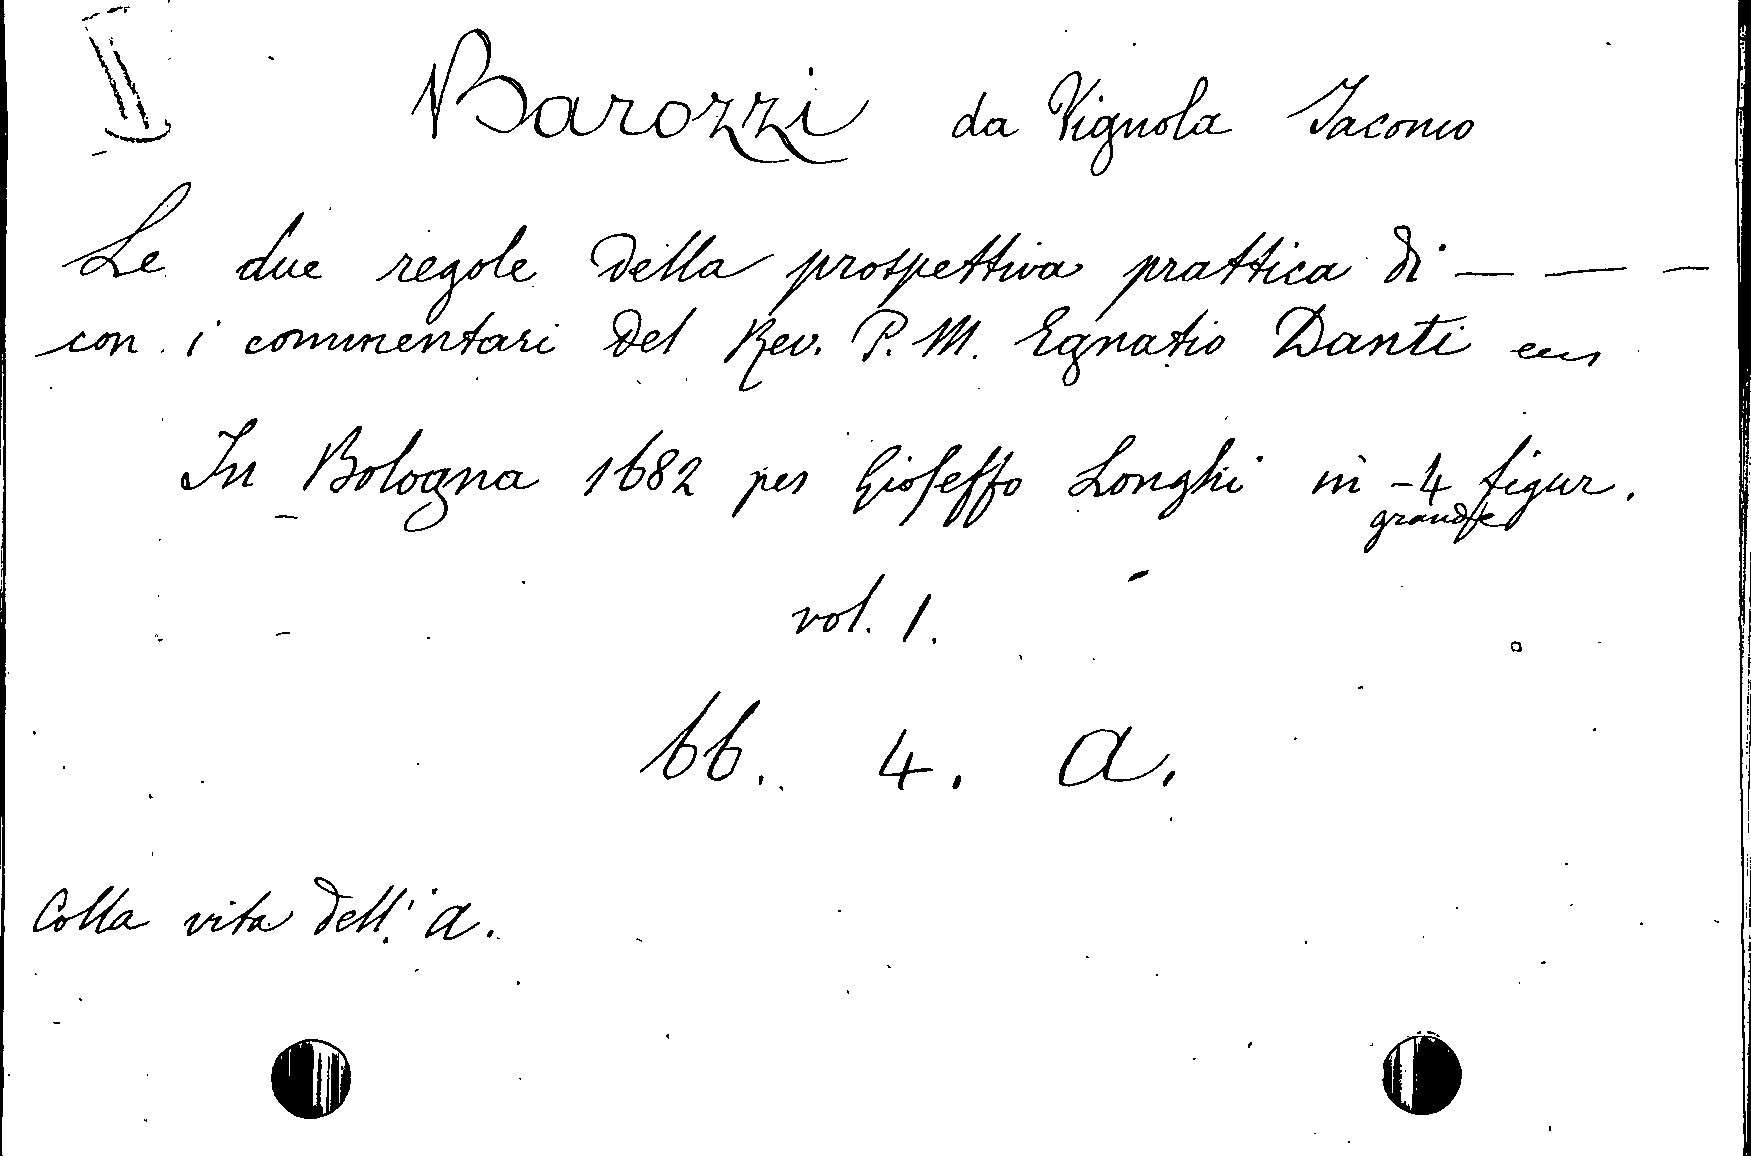 Barozzi da Vignola Iacomo
Le due regole della prospettiva prattica di — — —
con i commentari del Rev. P. M. Egnatio Danti ecc
In Bologna 1682 per Gioseffo Longhi in -4 figur.
grande
vol. 1.
bb. 4. a.
Colla vita dell' a.